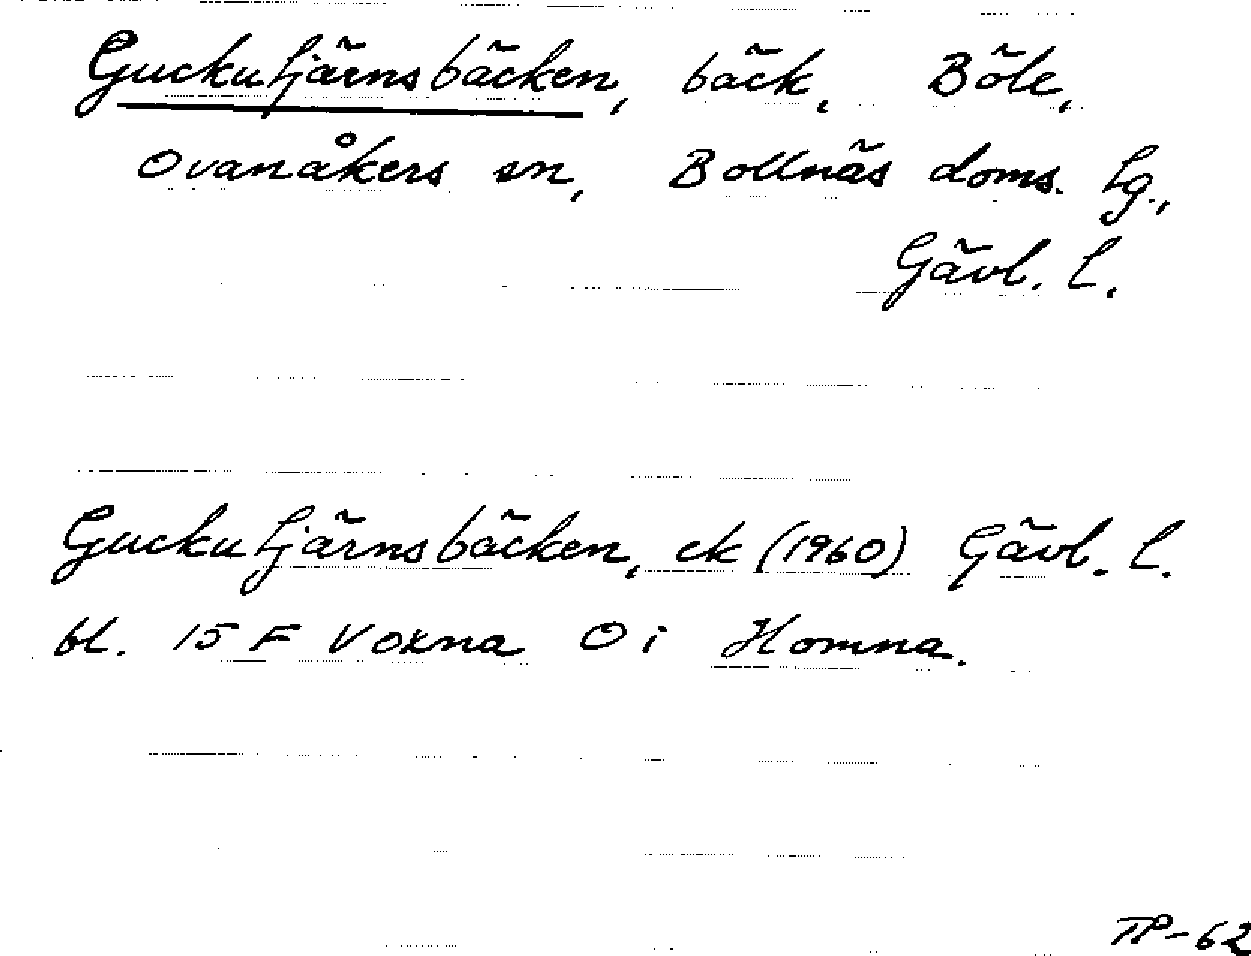 Guckutjärnsbäcken, bäck, Böle,
Ovanåkers sn, Bollnäs doms. lg.,
Gävl. l.
Guckutjärnsbäcken, ek (1960) Gävl. l.
bl. 15 F Voxna O i Homna.
TP-62